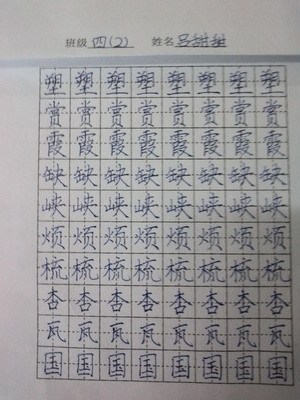 班级 四(2) 姓名 吕甜甜
塑塑塑塑塑塑塑塑
赏赏赏赏赏赏赏赏
霞霞霞霞霞霞霞霞
缺缺缺缺缺缺缺缺
峡峡峡峡峡峡峡峡
烦烦烦烦烦烦烦烦
梳梳梳梳梳梳梳梳
杏杏杏杏杏杏杏杏
瓦瓦瓦瓦瓦瓦瓦瓦
国国国国国国国国